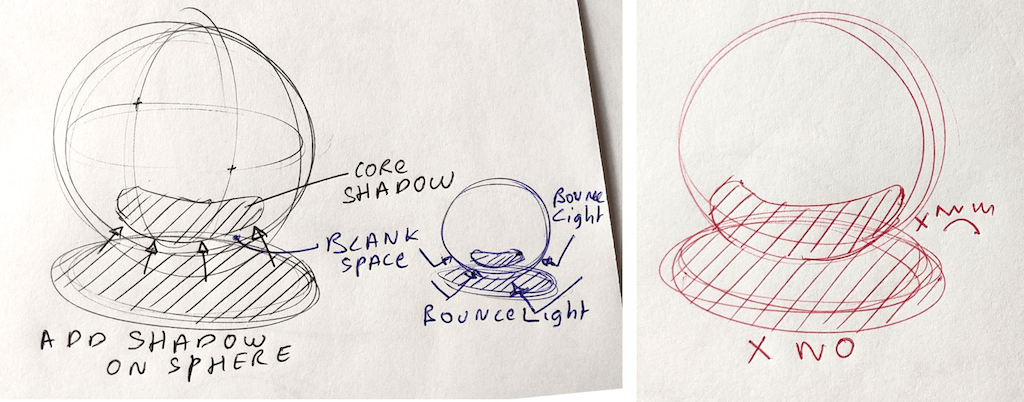 CORE
SHADOW
BLANK
SPACE
BOUNCE
Light
BOUNCE Light
ADD SHADOW
ON SPHERE
X
X NO